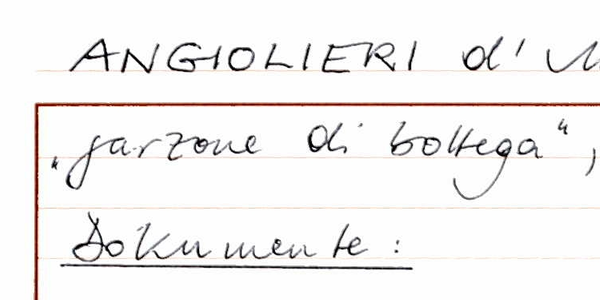 ANGIOLIERI d'
„garzone di bottega“,
Dokumente: